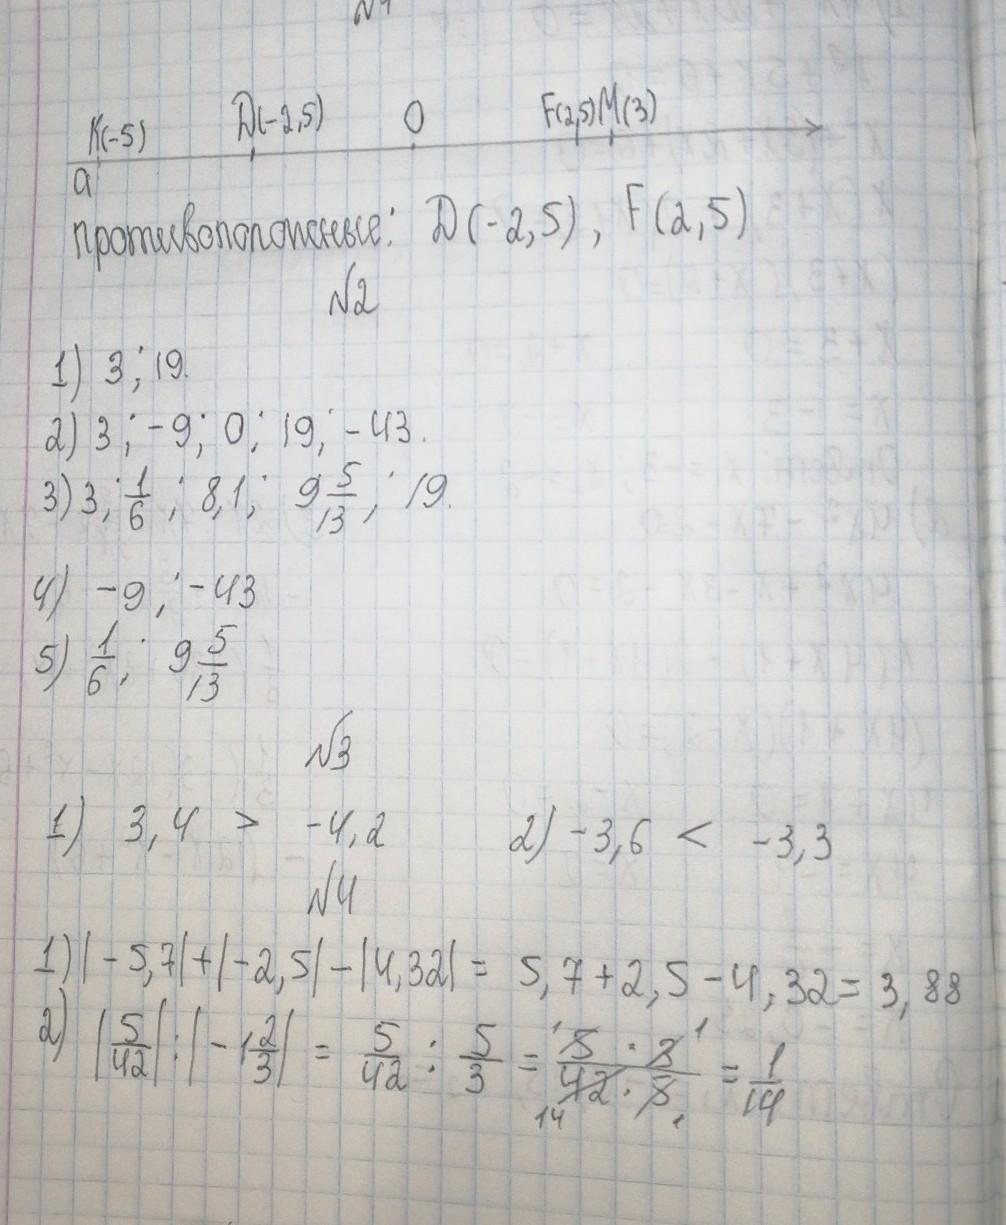 №1
K(-5) D(-2,5) O F(2,5) M(3)
a
противоположные: D(-2,5), F(2,5)
№2
1) 3; 19.
2) 3; -9; 0; 19; -43.
3) 3; 1/6; 8,1; 9 5/13; 19.
4) -9; -43
5) 1/6; 9 5/13
№3
1) 3,4 > -4,2 2) -3,6 < -3,3
№4
1) |-5,7|+|-2,5|-|4,32| = 5,7+2,5-4,32 = 3,88
2) |5/42| : |-1 2/3| = 5/42 : 5/3 = (5·3)/(42·5) = 1/14
1 1
14 1